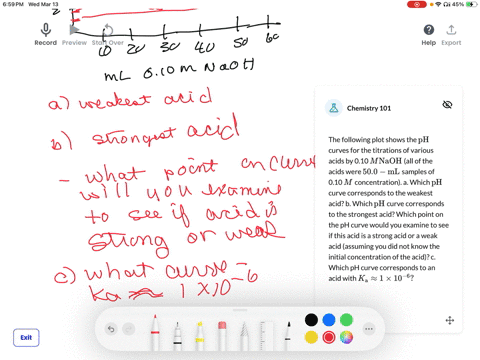 6:59 PM Wed Mar 13
45%
Record Preview Start Over
Help Export
2
10 20 30 40 50 60
mL 0.10 m NaOH
a) weakest acid
b) strongest acid
- what point on curve
will you examine
to see if acid is
strong or weak
c) what curve -
Ka ≈ 1 x 10^-6
Chemistry 101
The following plot shows the pH
curves for the titrations of various
acids by 0.10 M NaOH (all of the
acids were 50.0 - mL samples of
0.10 M concentration). a. Which pH
curve corresponds to the weakest
acid? b. Which pH curve corresponds
to the strongest acid? Which point on
the pH curve would you examine to see
if this acid is a strong acid or a weak
acid (assuming you did not know the
initial concentration of the acid)? c.
Which pH curve corresponds to an
acid with Ka ≈ 1 × 10^-6?
Exit